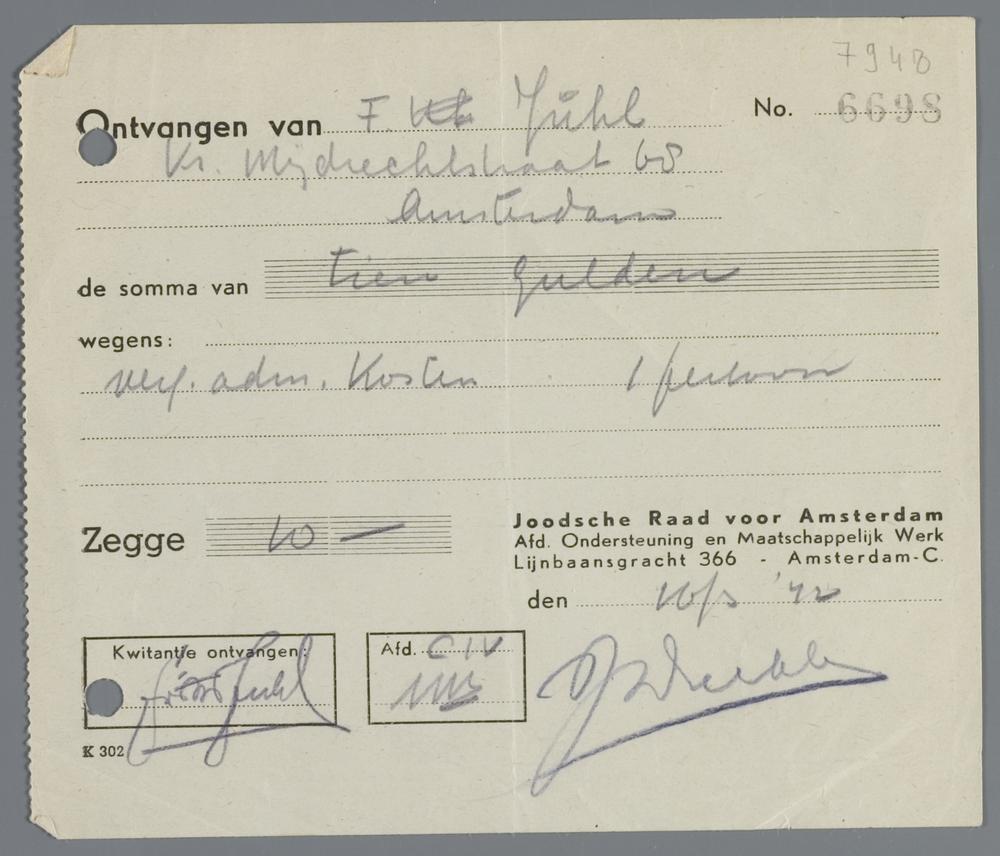 7948
Ontvangen van F. Jühl No. 6698
Kr. Mijdrechtstraat 68
Amsterdam
de somma van tien gulden
wegens:
verg. adm. Kosten 1 persoon
Zegge 10 —
Joodsche Raad voor Amsterdam
Afd. Ondersteuning en Maatschappelijk Werk
Lijnbaansgracht 366 - Amsterdam-C.
den 16/3 '42
Kwitantie ontvangen:
Afd. CIV
K 302